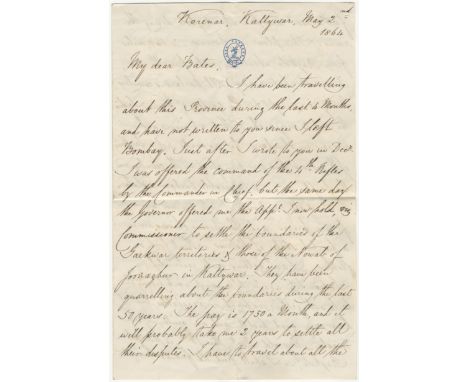 Korenar, Kattywar, May 2nd
1864
My dear Bates,
I have been travelling
about this Province during the last 4 Months
and have not written to you since I left
Bombay. Just after I wrote to you in Decr
I was offered the command of the 4th Rifles
by the Commander in Chief, but the same day
the Governor offered me the Appt. I now hold, viz
Commissioner to settle the boundaries of the
Gaekwar territories & those of the Nowab of
Joonaghur in Kattywar. They have been
quarrelling about the boundaries during the last
50 years. The pay is 1730 a Month, and it
will probably take me 2 years to settle all
their disputes. I have to travel about all the